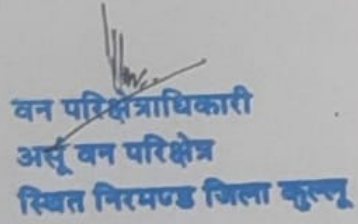 वन परिक्षेत्राधिकारी
अर्सू वन परिक्षेत्र
स्थित निरमण्ड जिला कुल्लू